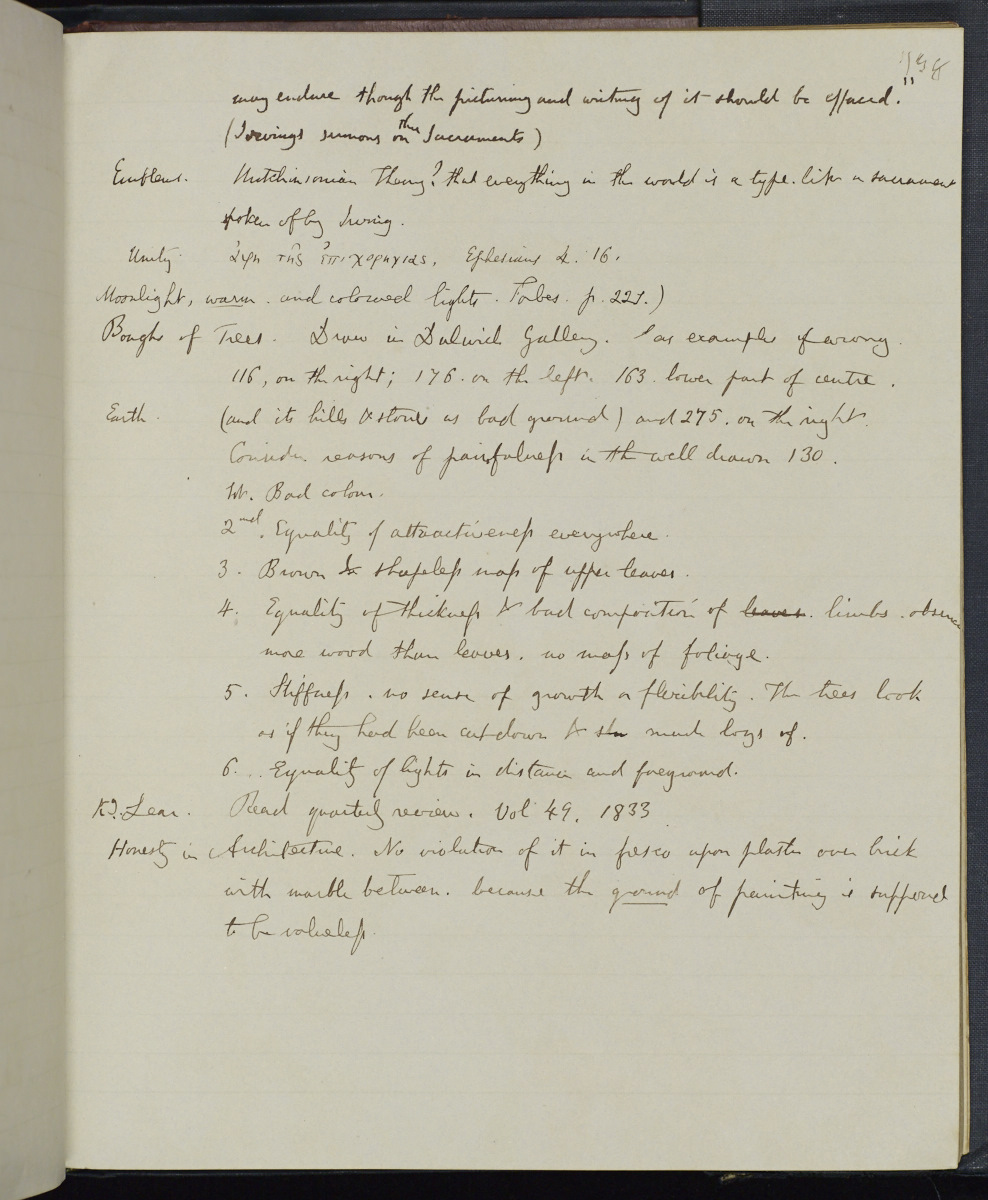 may endure though the picturing and writing of it should be effaced."
(Irvings sermons on the Sacraments)
Emblems. Hutchinsonian Theory? that everything in the world is a type. like a sacrament
spoken of by Irving.
Unity ἁφη τῆς ἐπιχορηγιας, Ephesians 4. 16.
Moonlight, warm. and coloured lights. Forbes. p. 221.)
Boughs of Trees. Draw in Dulwich Gallery. as examples of wrong.
116, on the right; 176. on the left. 163. lower part of centre.
Earth. (and its hills & stones as bad ground) and 275. on the right.
Consider reasons of painfulness in the well drawn 130.
1st. Bad colour.
2nd. Equality of attractiveness everywhere.
3. Brown & shapeless mass of upper leaves.
4. Equality of thickness & bad composition of leaves. limbs. absence
more wood than leaves. no mass of foliage.
5. Stiffness. no sense of growth or flexibility. The trees look
as if they had been cut down & made logs of.
6. Equality of lights in distance and foreground.
Kg. Lear. Read quarterly review. Vol 49. 1833
Honesty in Architecture. No violation of it in fresco upon plaster over brick
with marble between. because the ground of painting is supposed
to be valueless.